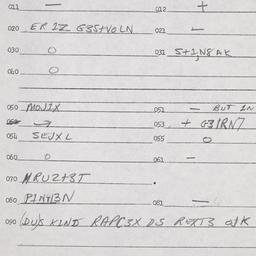 011 — 012 +
020 ER 1Z G35+VOLN 021 —
030 O 031 S+1,N8AK
040 O
050 MOJ1X 051 — BUT IN
053 + G31RN7
054 SEJXL 055 O
060 O 061 —
070 MRUZ+3T
080 P1NH3N 081 —
090 (DU)S KIND RAPC3X DS REXT3 O/K